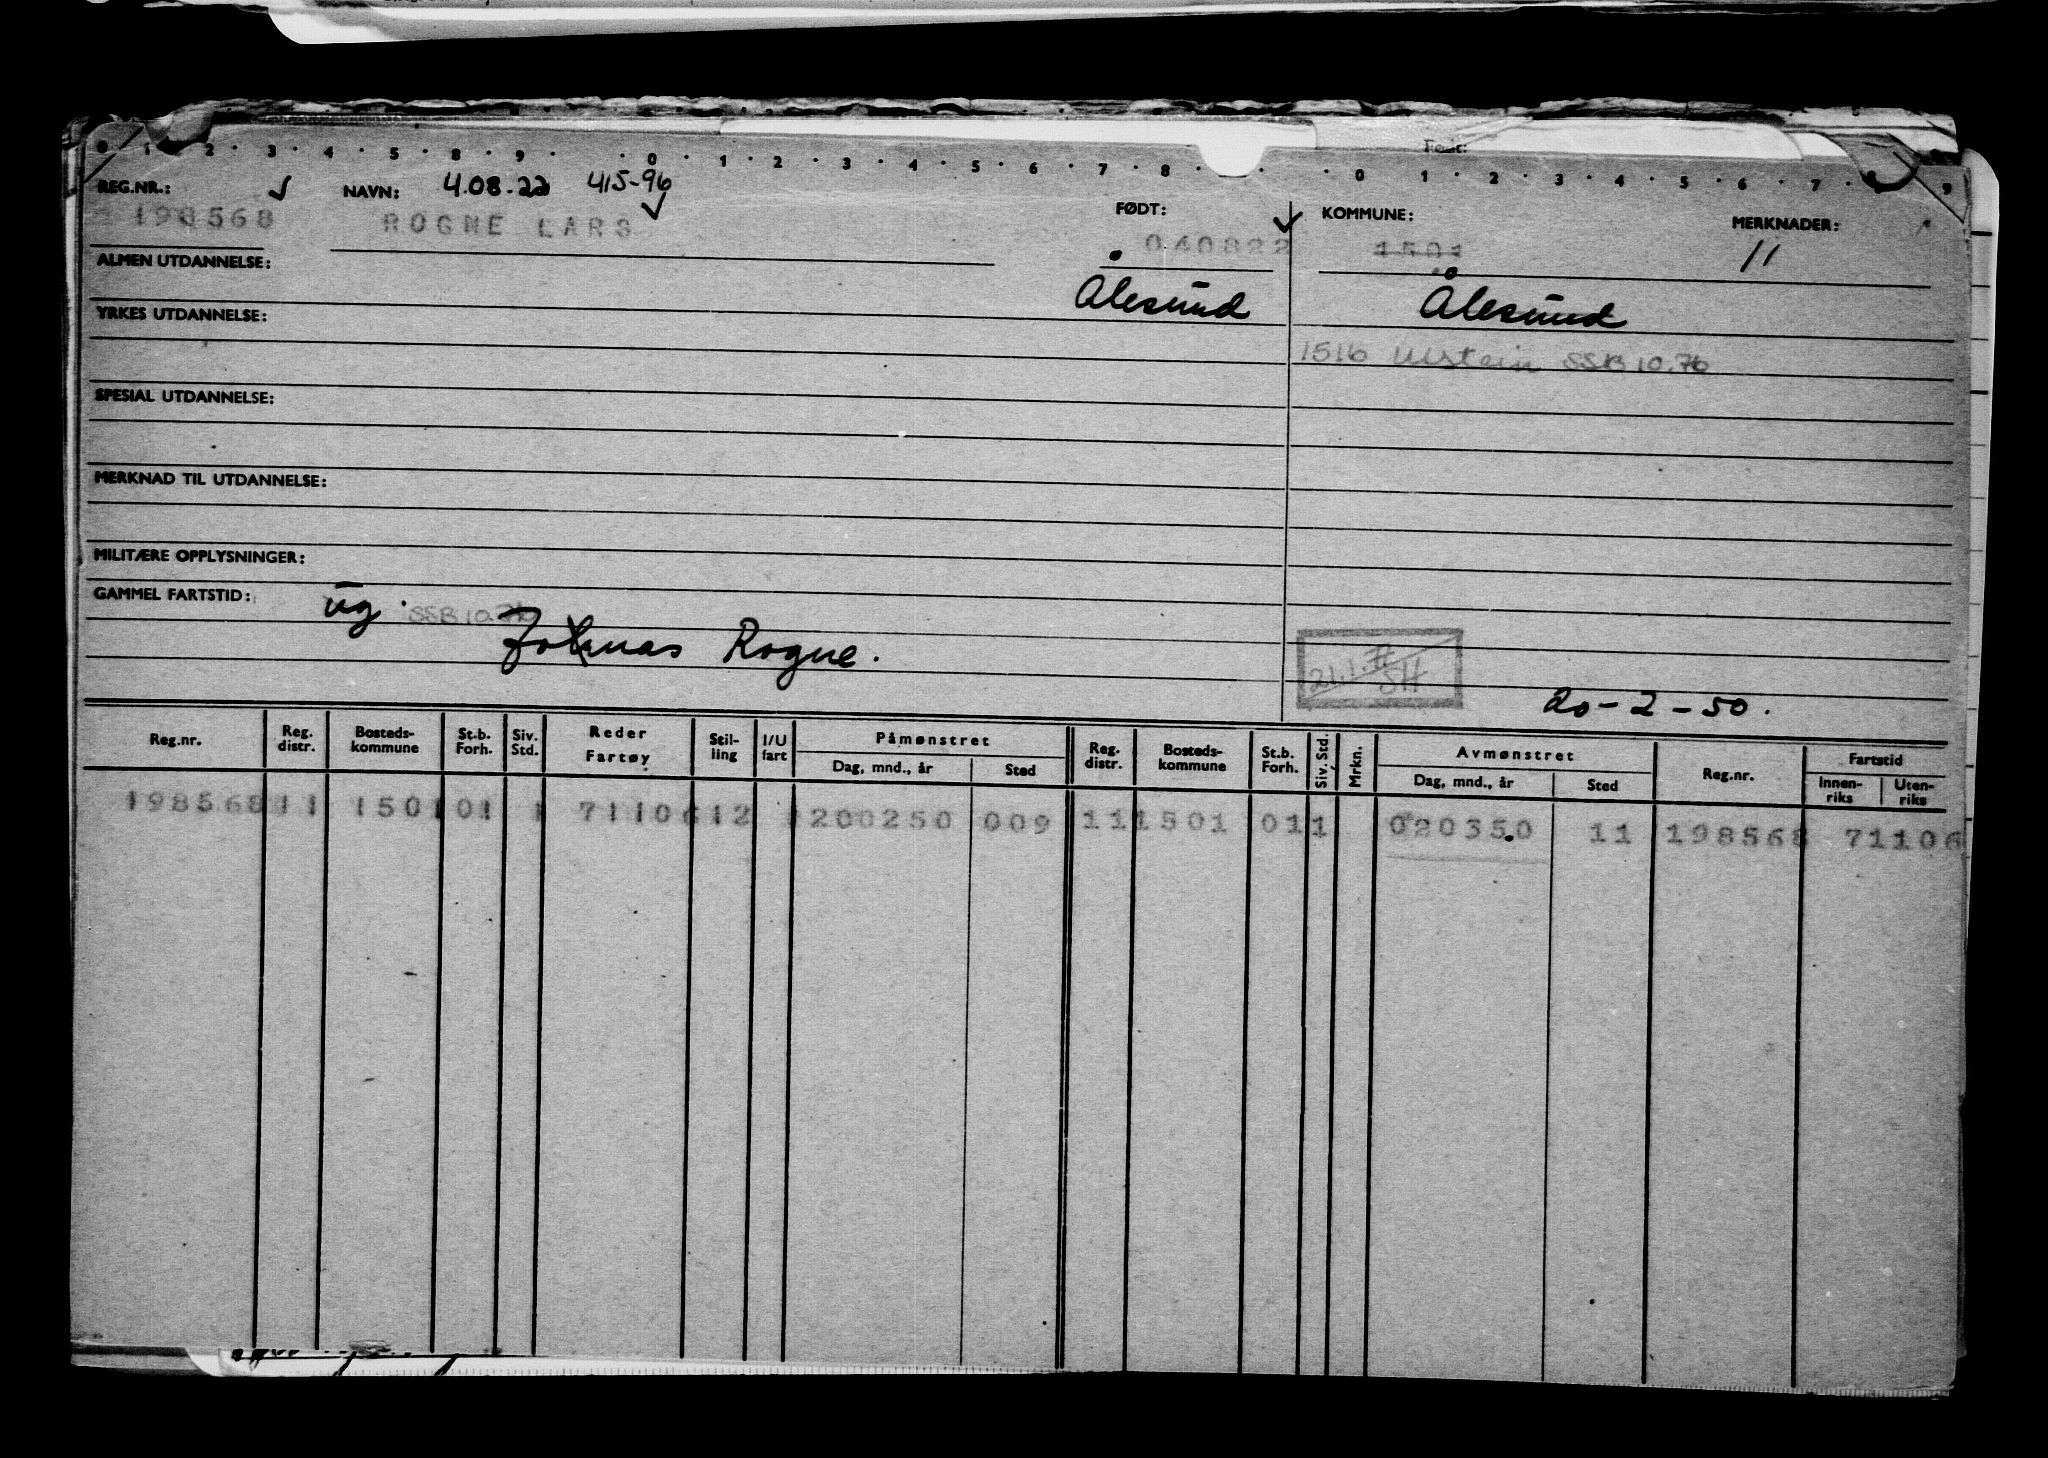 Født:
0 1 2 3 4 5 8 9 0 1 2 3 4 5 6 7 8 0 1 2 3 4 5 6 7 8 9
REG.NR.: NAVN: 4.08.22 415-96
198568 ROGNE LARS
FØDT: KOMMUNE: MERKNADER:
040822 1501 11
ALMEN UTDANNELSE:
Ålesund Ålesund
YRKES UTDANNELSE:
1516 Ulstein SSB 10.76
SPESIAL UTDANNELSE:
MERKNAD TIL UTDANNELSE:
MILITÆRE OPPLYSNINGER:
GAMMEL FARTSTID: ug. SSB 10.76
Rogne.
20-2-50.
Reg.nr. Reg. distr. Bosteds-kommune St.b. Forh. Siv. Std. Reder Fartøy Stil-ling I/U fart Påmønstret Dag, mnd., år Sted Reg. distr. Bosteds-kommune St.b. Forh. Siv. Std. Mrkn. Avmønstret Dag, mnd., år Sted Reg.nr. Fartstid Innen-riks Uten-riks
198568 11 1501 01 1 71106 12 1 200250 009 11 1501 01 1 020350 11 198568 71106